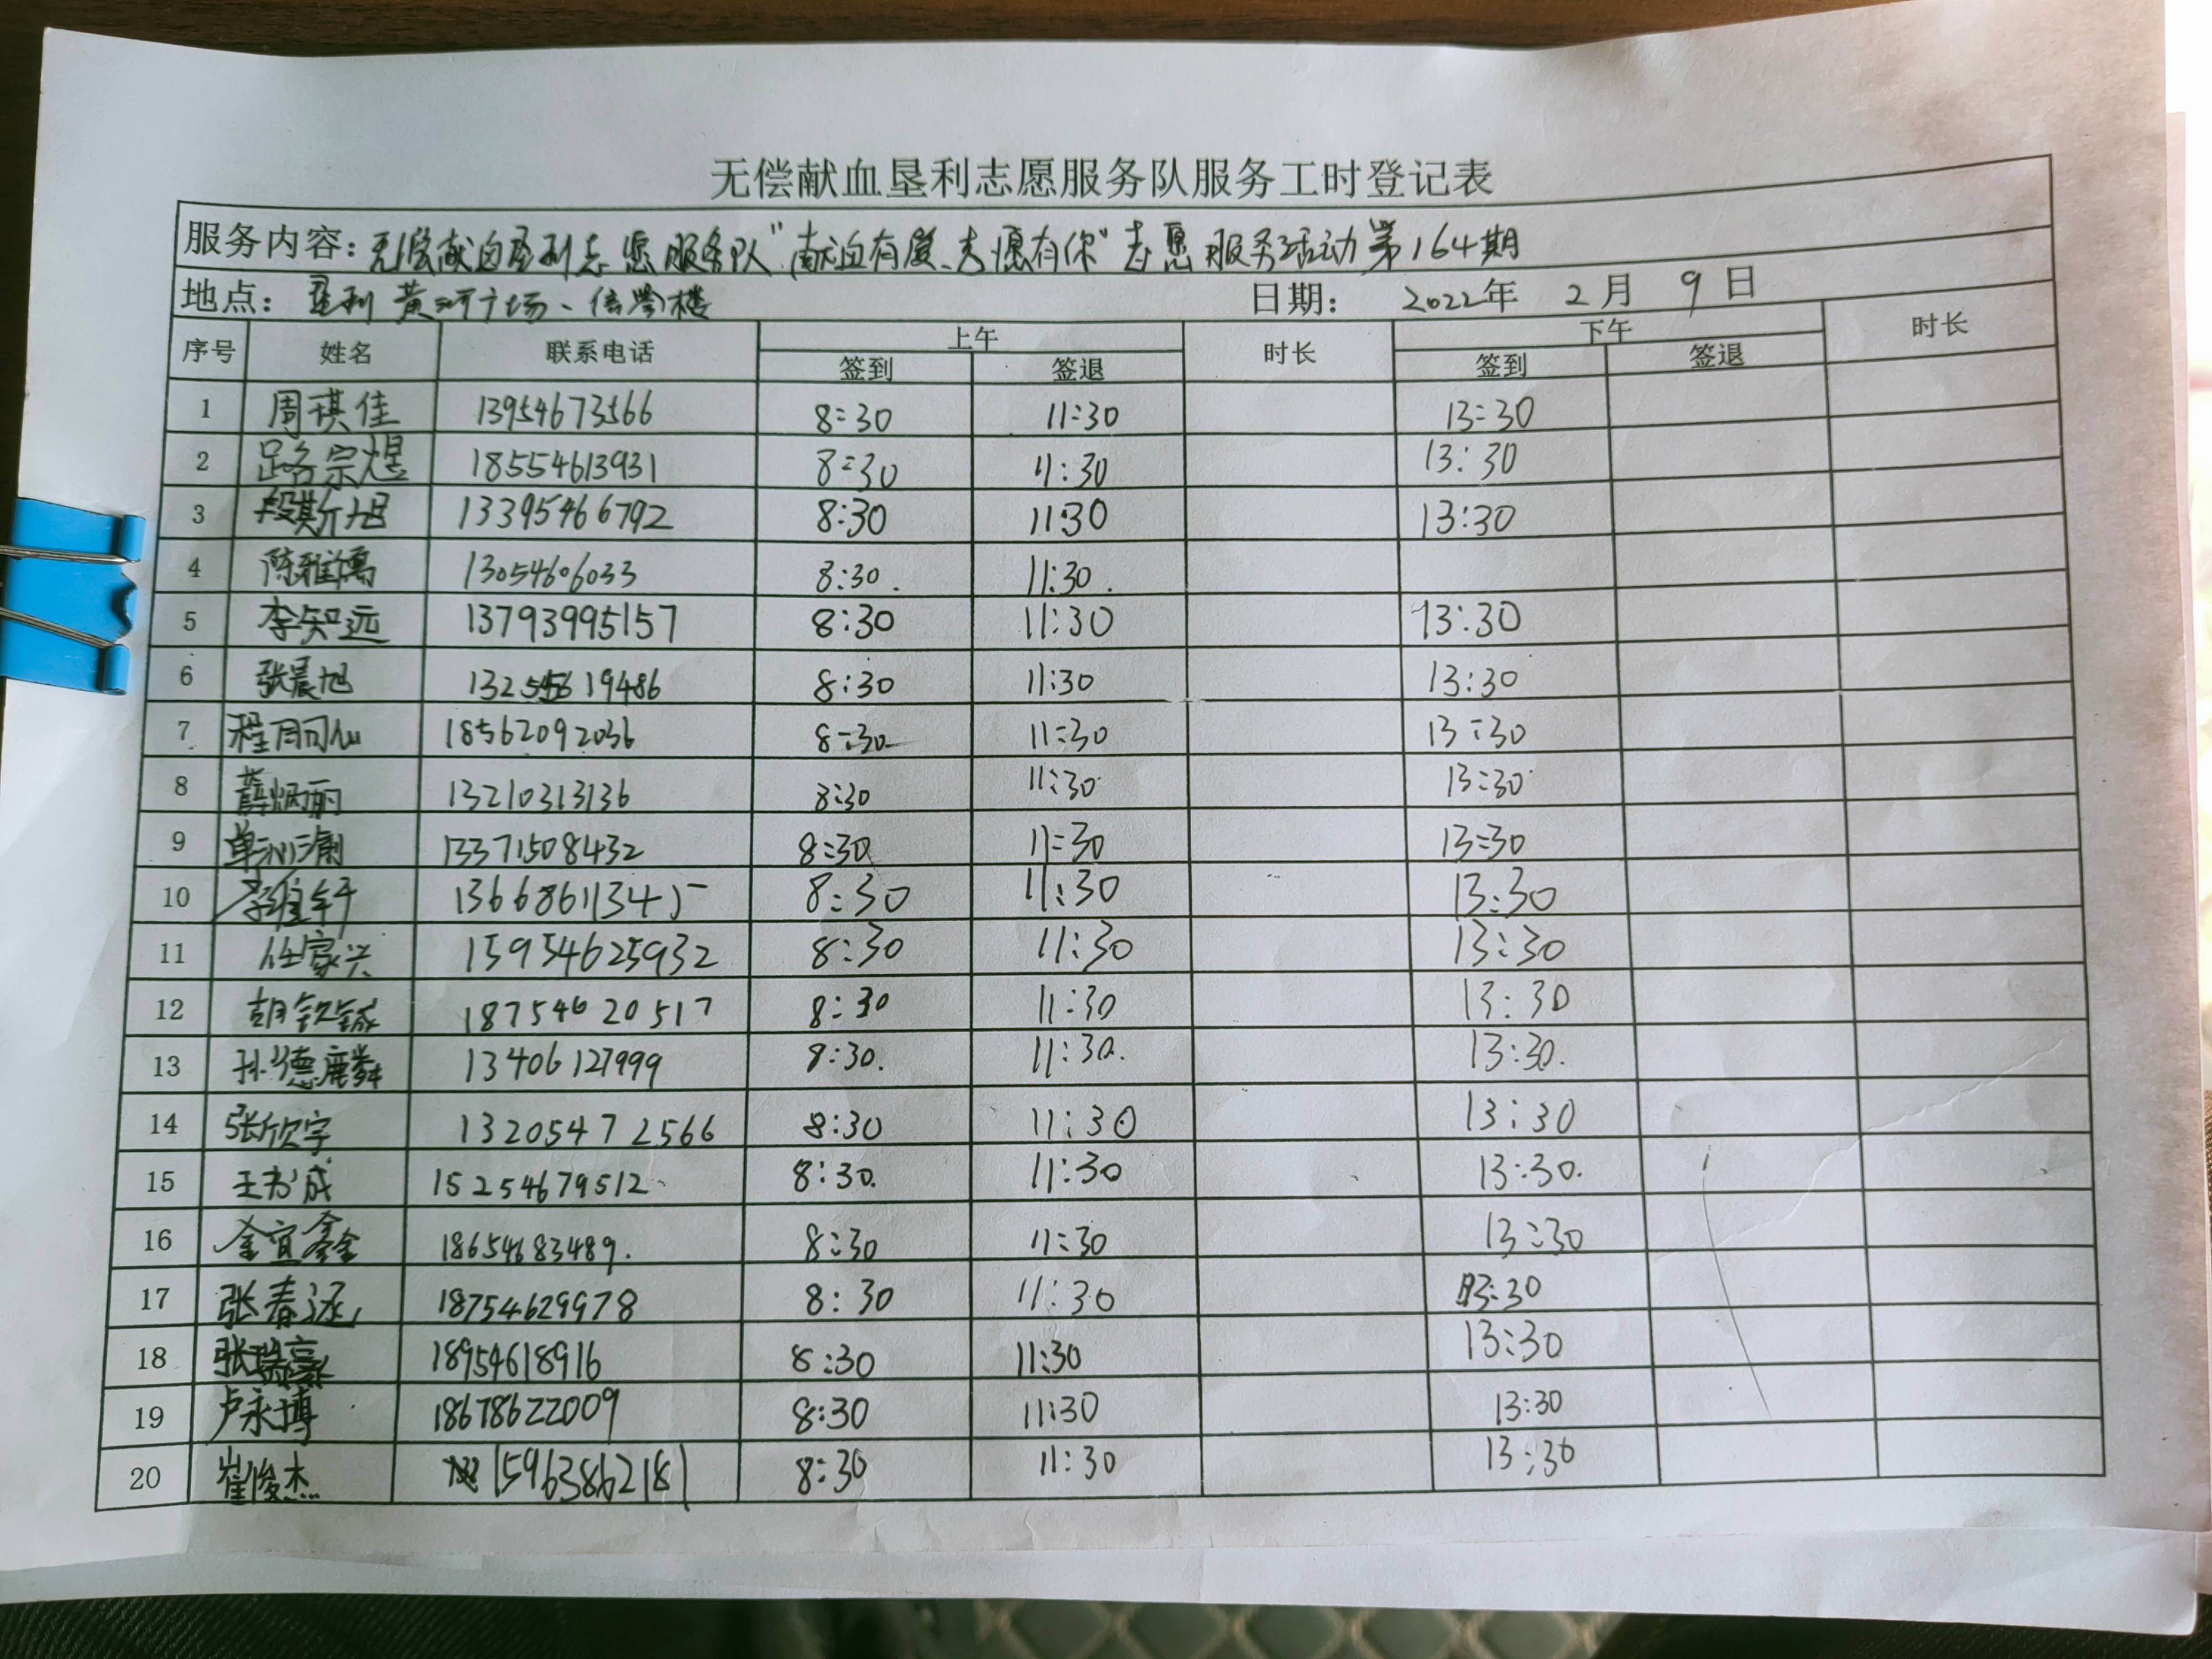 无偿献血垦利志愿服务队服务工时登记表
服务内容：无偿献血垦利志愿服务队"献血有爱、志愿有你"志愿服务活动第164期
地点：垦利黄河广场、信誉楼 日期： 2022年 2月 9日
序号 姓名 联系电话 上午 时长 下午 时长
签到 签退 签到 签退
1 周琪佳 13954673566 8:30 11:30 13:30
2 路宗煜 18554613931 8:30 11:30 13:30
3 段斯旭 13395466792 8:30 11:30 13:30
4 陈雅 13054606033 8:30. 11:30.
5 李知远 13793995157 8:30 11:30 13:30
6 张晨旭 8:30 11:30 13:30
7 程 18562092036 8:30 11:30 13:30
8 薛炳丽 13210313136 8:30 11:30 13:30
9 单 13371508432 8:30 11:30 13:30
10 李 13668611345 8:30 11:30 13:30
11 任家兴 15954625932 8:30 11:30 13:30
12 胡钦铖 18754620517 8:30 11:30 13:30
13 孙德麟 13406127999 8:30. 11:30. 13:30.
14 张欣宇 13205472566 8:30 11:30 13:30
15 王 成 15254679512 8:30. 11:30 13:30.
16 金宜鑫 18654683489. 8:30 11:30 13:30
17 张春 18754629978 8:30 11:30 13:30
18 张瑞豪 18954618916 8:30 11:30 13:30
19 卢永博 18678622009 8:30 11:30 13:30
20 崔俊杰 15963862181 8:30 11:30 13:30